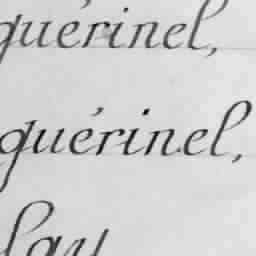 guérinel,
guérinel,
lay